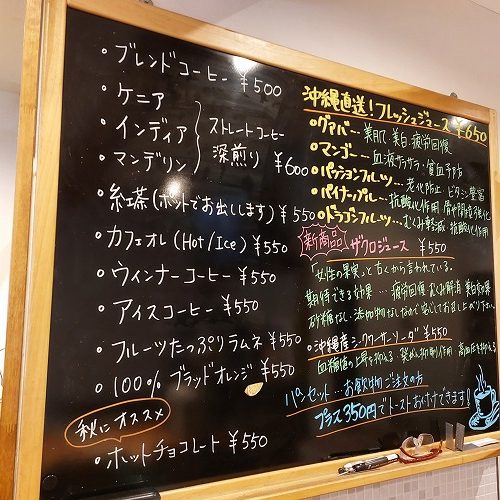 ・ブレンドコーヒー ¥500
・ケニア
・インディア
・マンデリン
ストレートコーヒー
深煎り ¥600
・紅茶(ホットでお出しします) ¥550
・カフェオレ(Hot/Ice) ¥550
・ウィンナーコーヒー ¥550
・アイスコーヒー ¥550
・フルーツたっぷりラムネ ¥550
・100%ブラッドオレンジ ¥550
秋にオススメ
・ホットチョコレート ¥550
沖縄直送!フレッシュジュース ¥650
・グァバー…美肌・美白・疲労回復
・マンゴー…血液サラサラ・貧血予防
・パッションフルーツ…老化防止・ビタミン豊富
・パイナップル…抗酸化作用
・ドラゴンフルーツ…むくみ軽減 抗酸化作用
新商品 ザクロジュース ¥550
「女性の果実」と古くから言われている。
期待できる効果…疲労回復 むくみ解消 美白効果
砂糖なし・添加物なしなので安心してお召し上がり下さい。
・沖縄産シークワーサーソーダ ¥550
血糖値の上昇を抑える 発がん抑制作用 高血圧を抑える
パンセット…お飲物ご注文の方
プラス350円でトーストお付けできます!